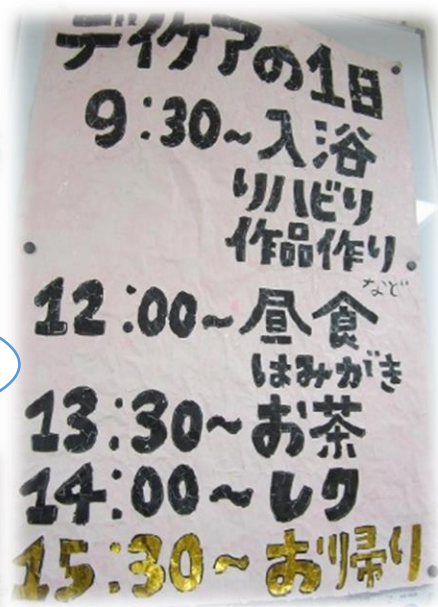 デイケアの1日
9:30~入浴
リハビリ
作品作り
など
12:00~昼食
はみがき
13:30~お茶
14:00~レク
15:30~お帰り